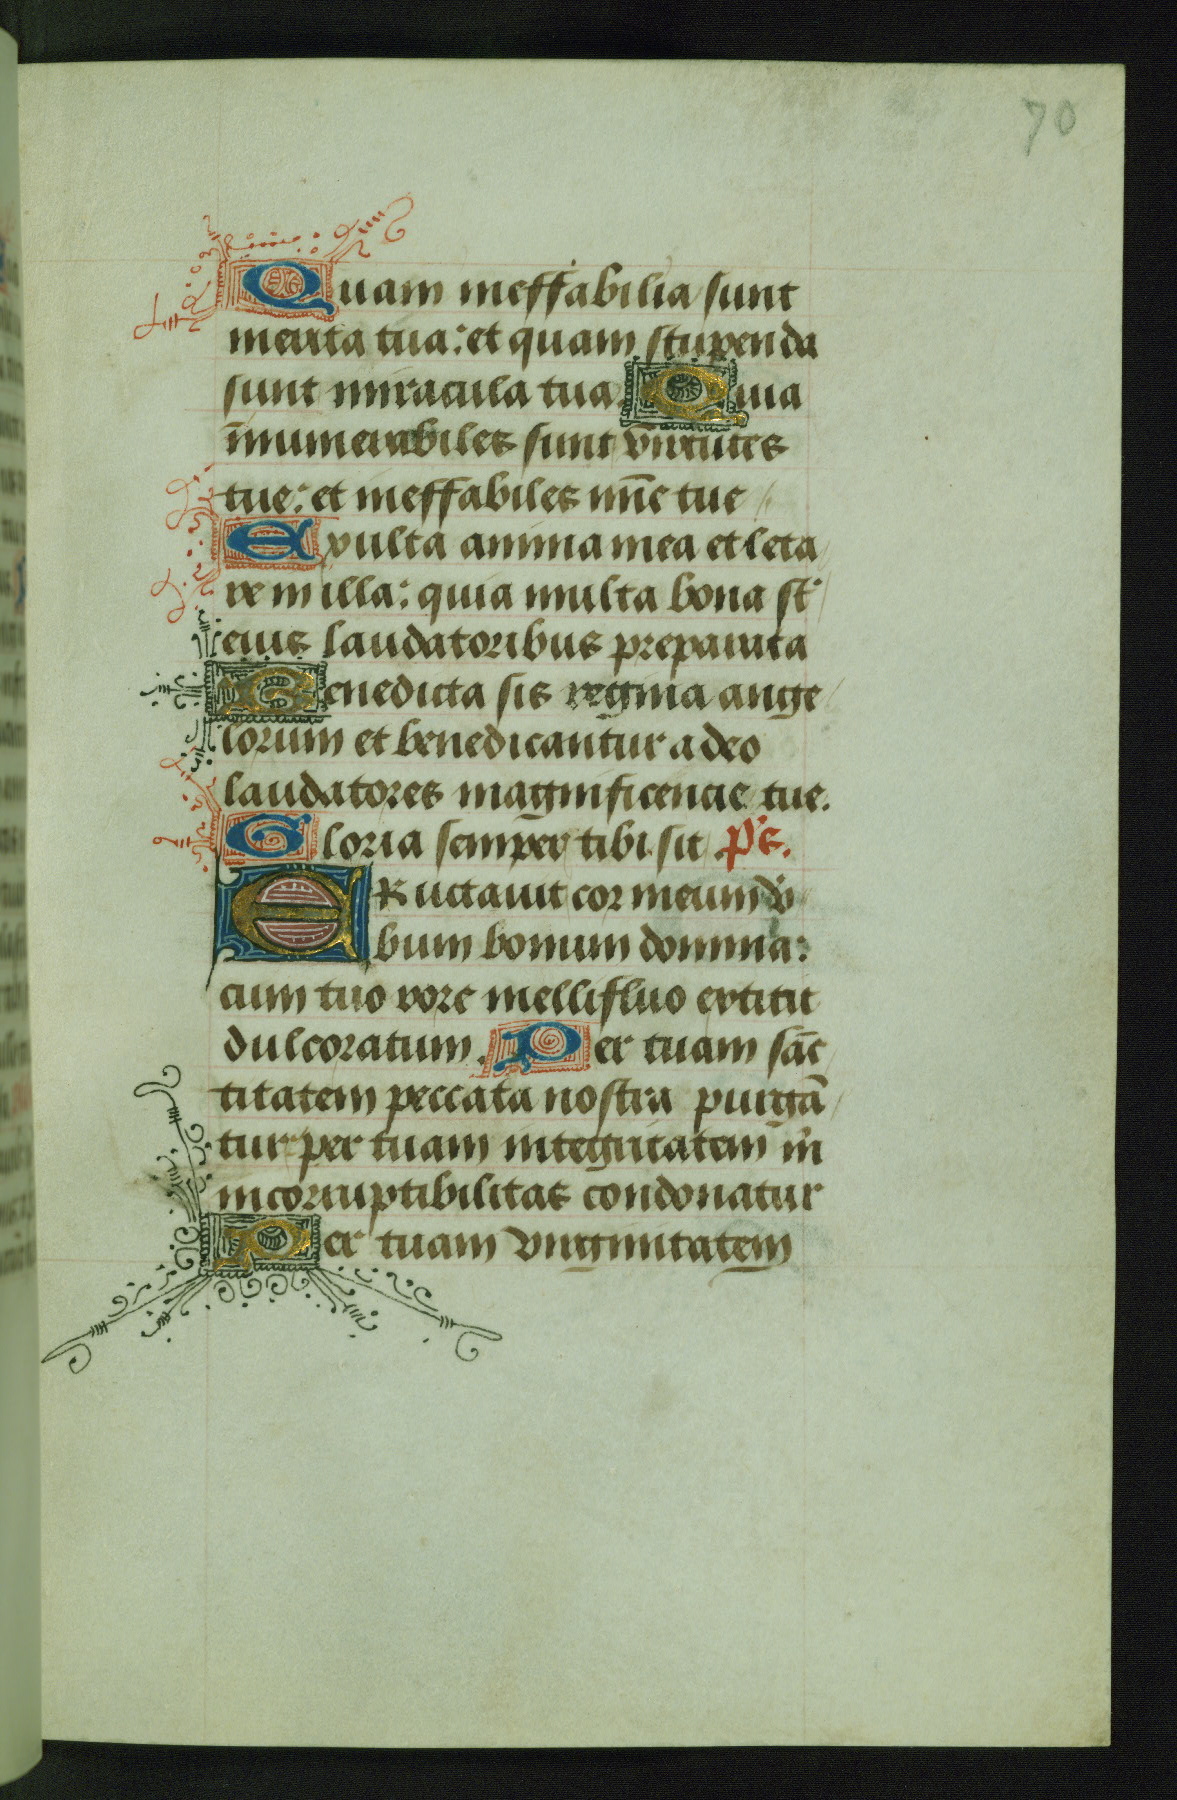 70
Quam ineffabilia sunt
merita tua: et quam stupenda
sunt miracula tua. Quia
īnumerabiles sunt v̄irtutes
tue: et ineffabiles mīe tue
Exulta anima mea et leta
re in illa: quia multa bona st̄
eius laudatoribus preparata
Benedicta sis regina ange
lorum et benedicantur a deo
laudatores magnificencie tue.
Gloria semper tibi sit. p̄s.
ERuctauit cor meum v̄
bum bonum domina:
cum tuo rore mellifluo extitit
dulcoratum. Per tuam sāc
titatem peccata nostra purgā
tur per tuam integritatem
incorruptibilitas condonatur
Per tuam virginitatem